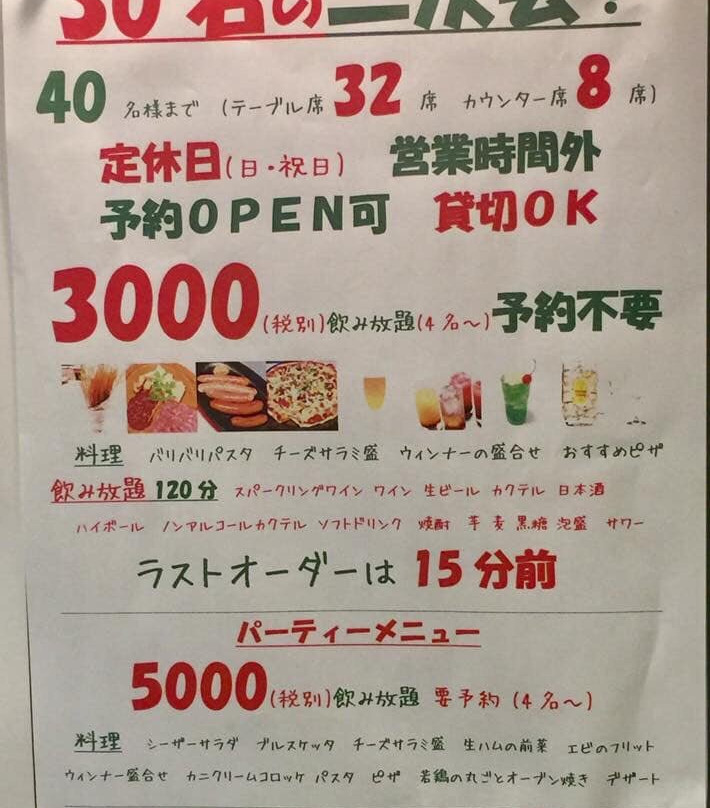 30名の二次会!
40 名様まで (テーブル席 32 席 カウンター席 8 席)
定休日(日・祝日) 営業時間外
予約OPEN可 貸切OK
3000(税別)飲み放題(4名~)予約不要
料理 バリバリパスタ チーズサラミ盛 ウィンナーの盛合せ おすすめピザ
飲み放題 120分 スパークリングワイン ワイン 生ビール カクテル 日本酒
ハイボール ノンアルコールカクテル ソフトドリンク 焼酎 芋 麦 黒糖 泡盛 サワー
ラストオーダーは 15分前
パーティーメニュー
5000(税別)飲み放題 要予約 (4名~)
料理 シーザーサラダ ブルスケッタ チーズサラミ盛 生ハムの前菜 エビのフリット
ウィンナー盛合せ カニクリームコロッケ パスタ ピザ 若鶏の丸ごとオーブン焼き デザート